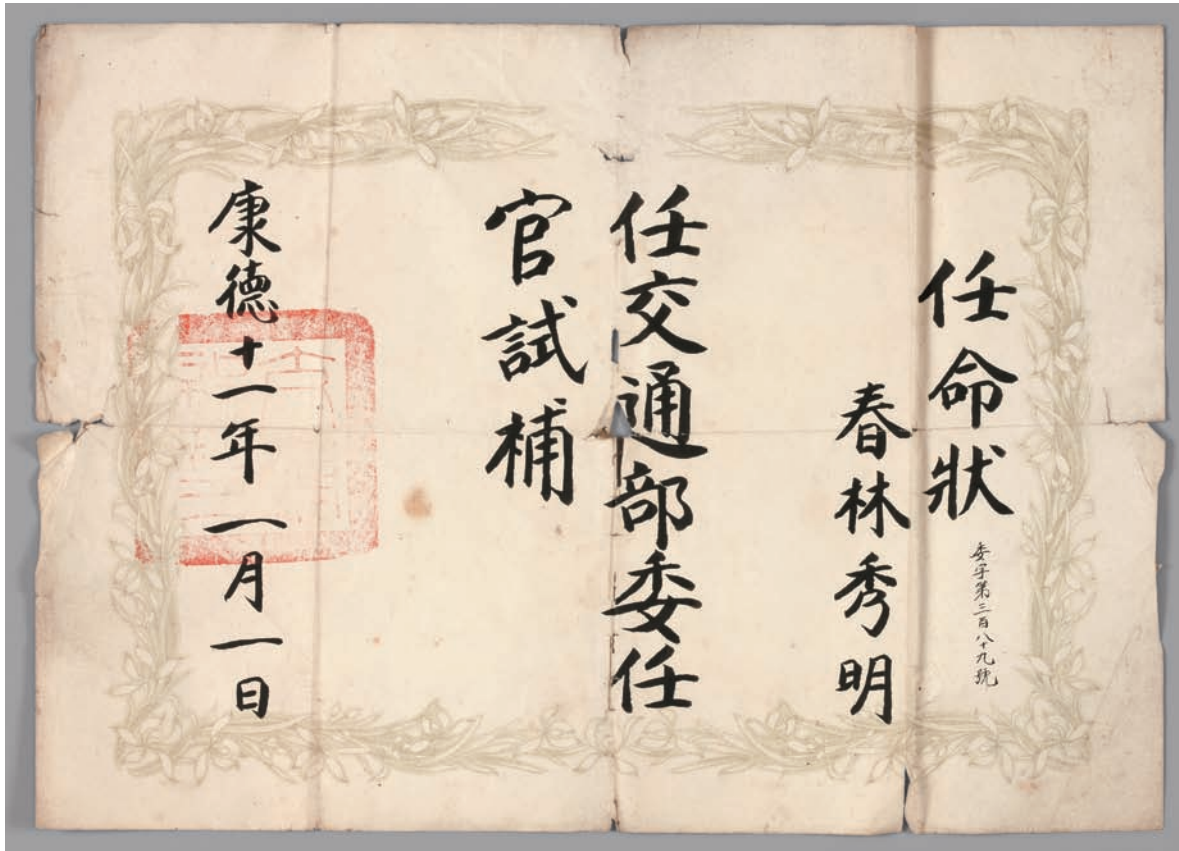 任命狀
委字第三百八十九號
春林秀明
任交通部委任
官試補
康德十一年一月一日